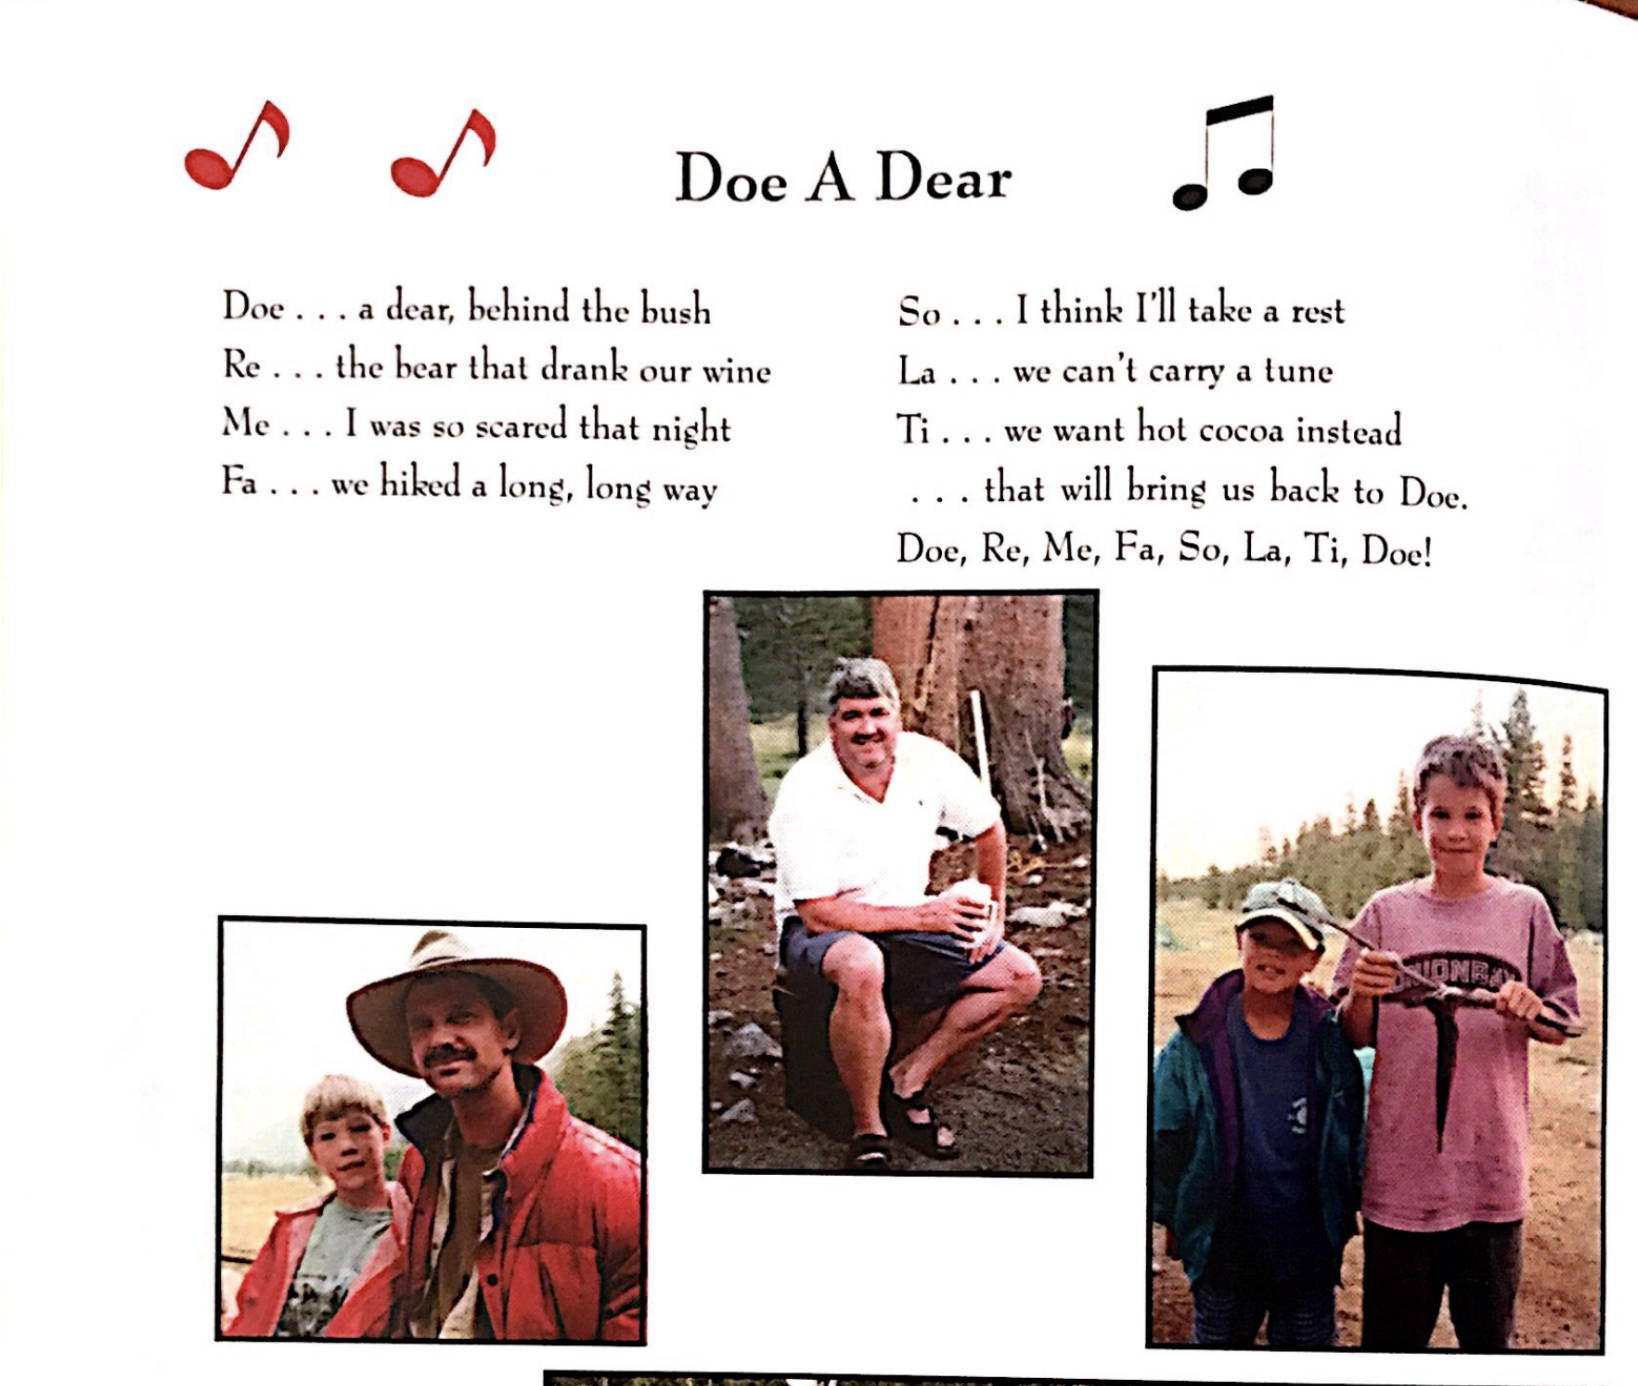 Doe A Dear
Doe . . . a dear, behind the bush
Re . . . the bear that drank our wine
Me . . . I was so scared that night
Fa . . . we hiked a long, long way
So . . . I think I'll take a rest
La . . . we can't carry a tune
Ti . . . we want hot cocoa instead
. . . that will bring us back to Doe.
Doe, Re, Me, Fa, So, La, Ti, Doe!